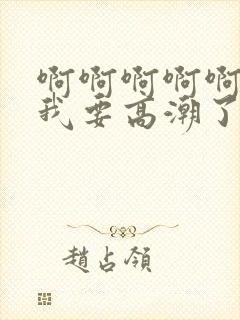 啊啊啊啊啊
我要高潮了
趙占領